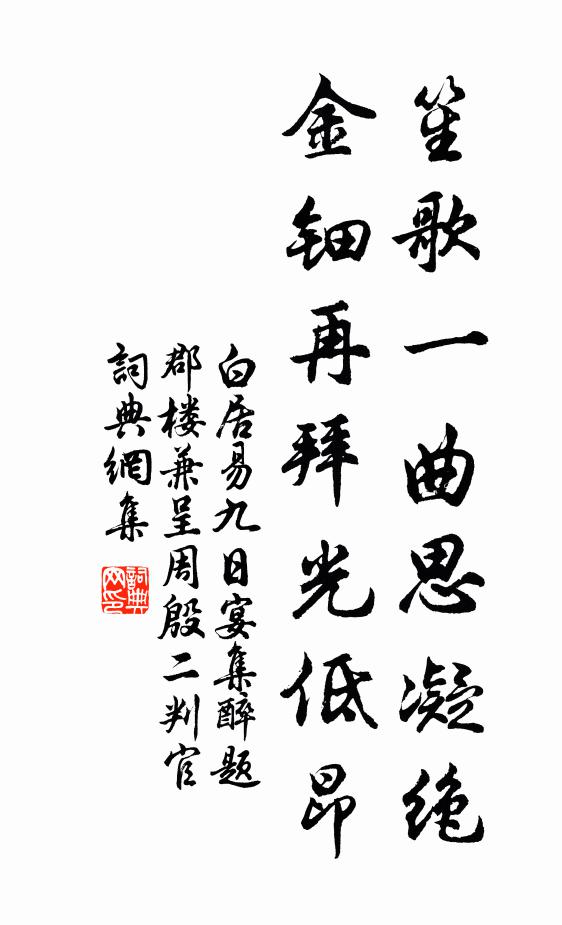 笙歌一曲思凝绝
金钿再拜光低昂
白居易九日宴集醉题
郡楼兼呈周殷二判官
詞典網集
詞典
网印